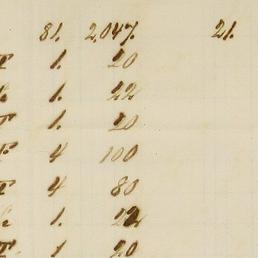 81. 2,047. 21.
1. 20
1. 22
1. 20
4 100
4 80
1. 22
1 20